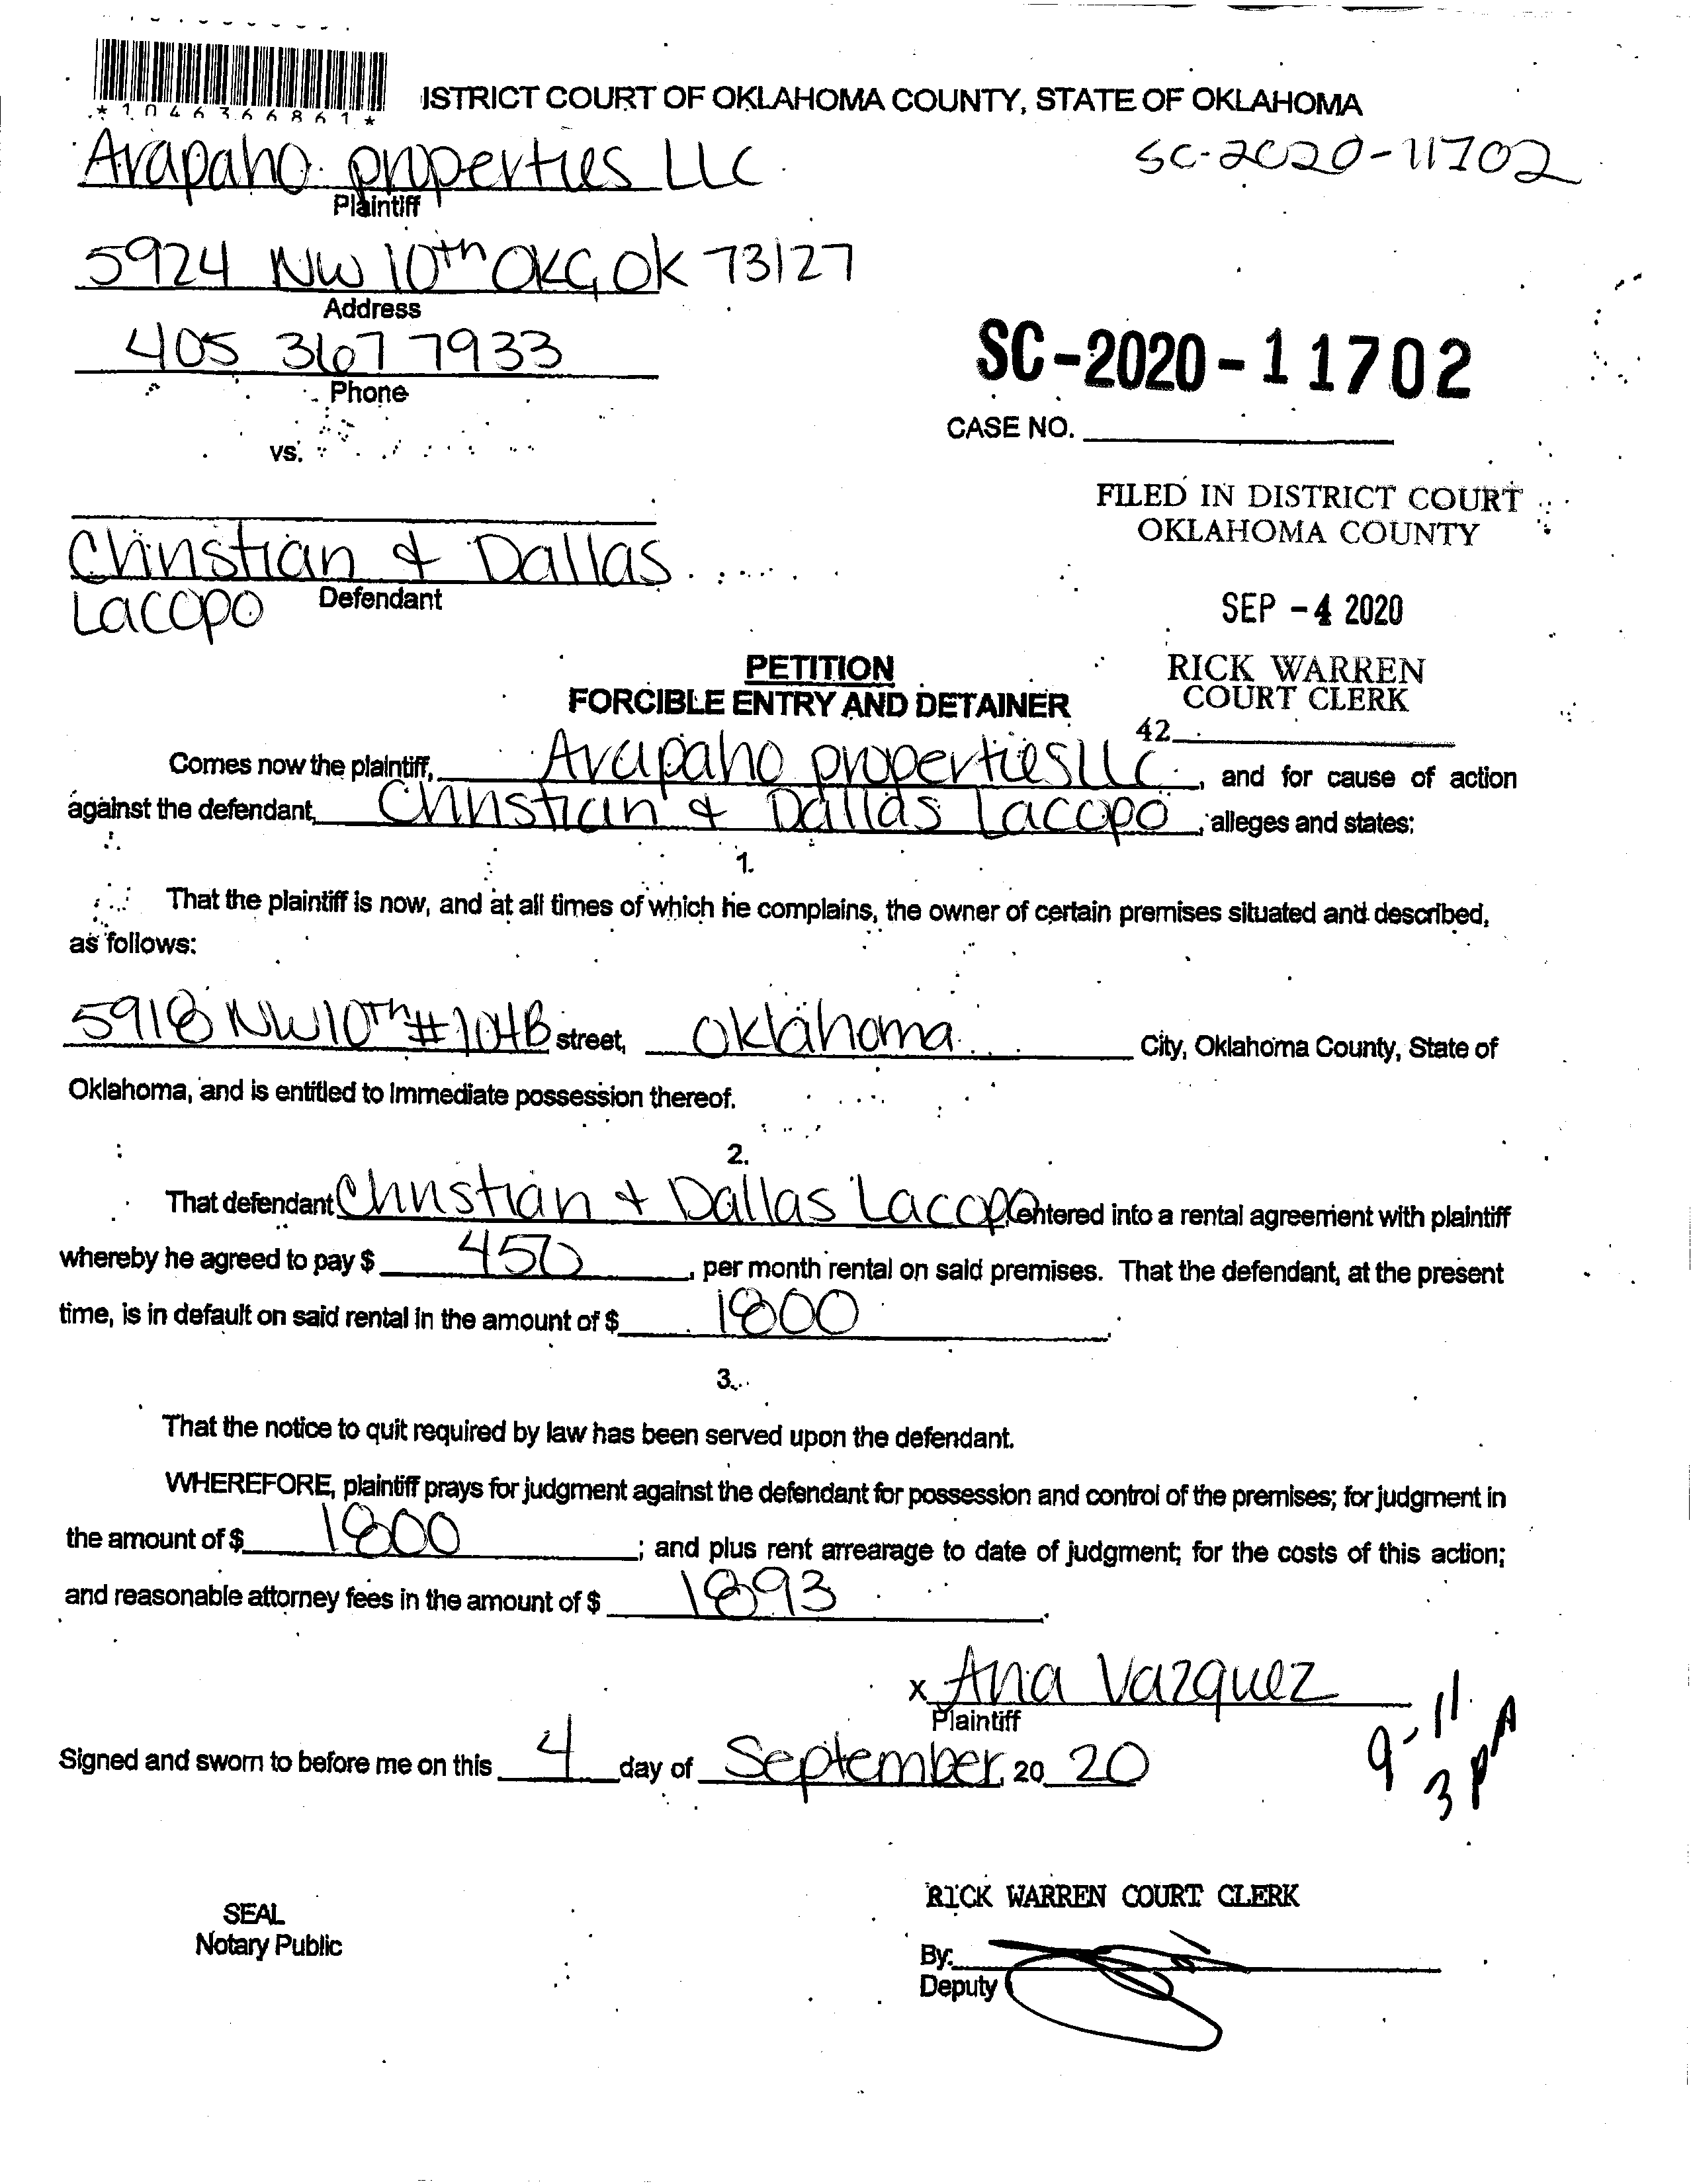 *1046366861*
ISTRICT COURT OF OKLAHOMA COUNTY, STATE OF OKLAHOMA
Arapaho properties LLC
SC-2020-11702
Plaintiff
5924 NW 10th OKC, OK 73127
Address
405 367 7933
Phone
SC-2020-11702
CASE NO.
vs.
FILED IN DISTRICT COURT
OKLAHOMA COUNTY
Christian & Dallas
Lacopo
Defendant
SEP -4 2020
PETITION
FORCIBLE ENTRY AND DETAINER
RICK WARREN
COURT CLERK
42
Comes now the plaintiff, Arapaho properties LLC, and for cause of action
against the defendant, Christian & Dallas Lacopo, alleges and states:
1.
That the plaintiff is now, and at all times of which he complains, the owner of certain premises situated and described,
as follows:
5918 NW 10th #104B street, Oklahoma City, Oklahoma County, State of
Oklahoma, and is entitled to immediate possession thereof.
2.
That defendant Christian & Dallas Lacopo, entered into a rental agreement with plaintiff
whereby he agreed to pay $ 450, per month rental on said premises. That the defendant, at the present
time, is in default on said rental in the amount of $ 1800.
3.
That the notice to quit required by law has been served upon the defendant.
WHEREFORE, plaintiff prays for judgment against the defendant for possession and control of the premises; for judgment in
the amount of $ 1800; and plus rent arrearage to date of judgment; for the costs of this action;
and reasonable attorney fees in the amount of $ 1893.
x Ana Vazquez
Plaintiff
9-11
3 PM
Signed and sworn to before me on this 4 day of September, 20 20
RICK WARREN COURT CLERK
SEAL
Notary Public
By:
Deputy